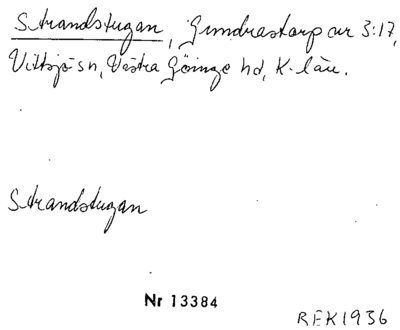 Strandstugan, Gundrastorp av 3:17,
Vittsjö sn, Västra Göinge hd, K-län.
Strandstugan
Nr 13384
REK1936